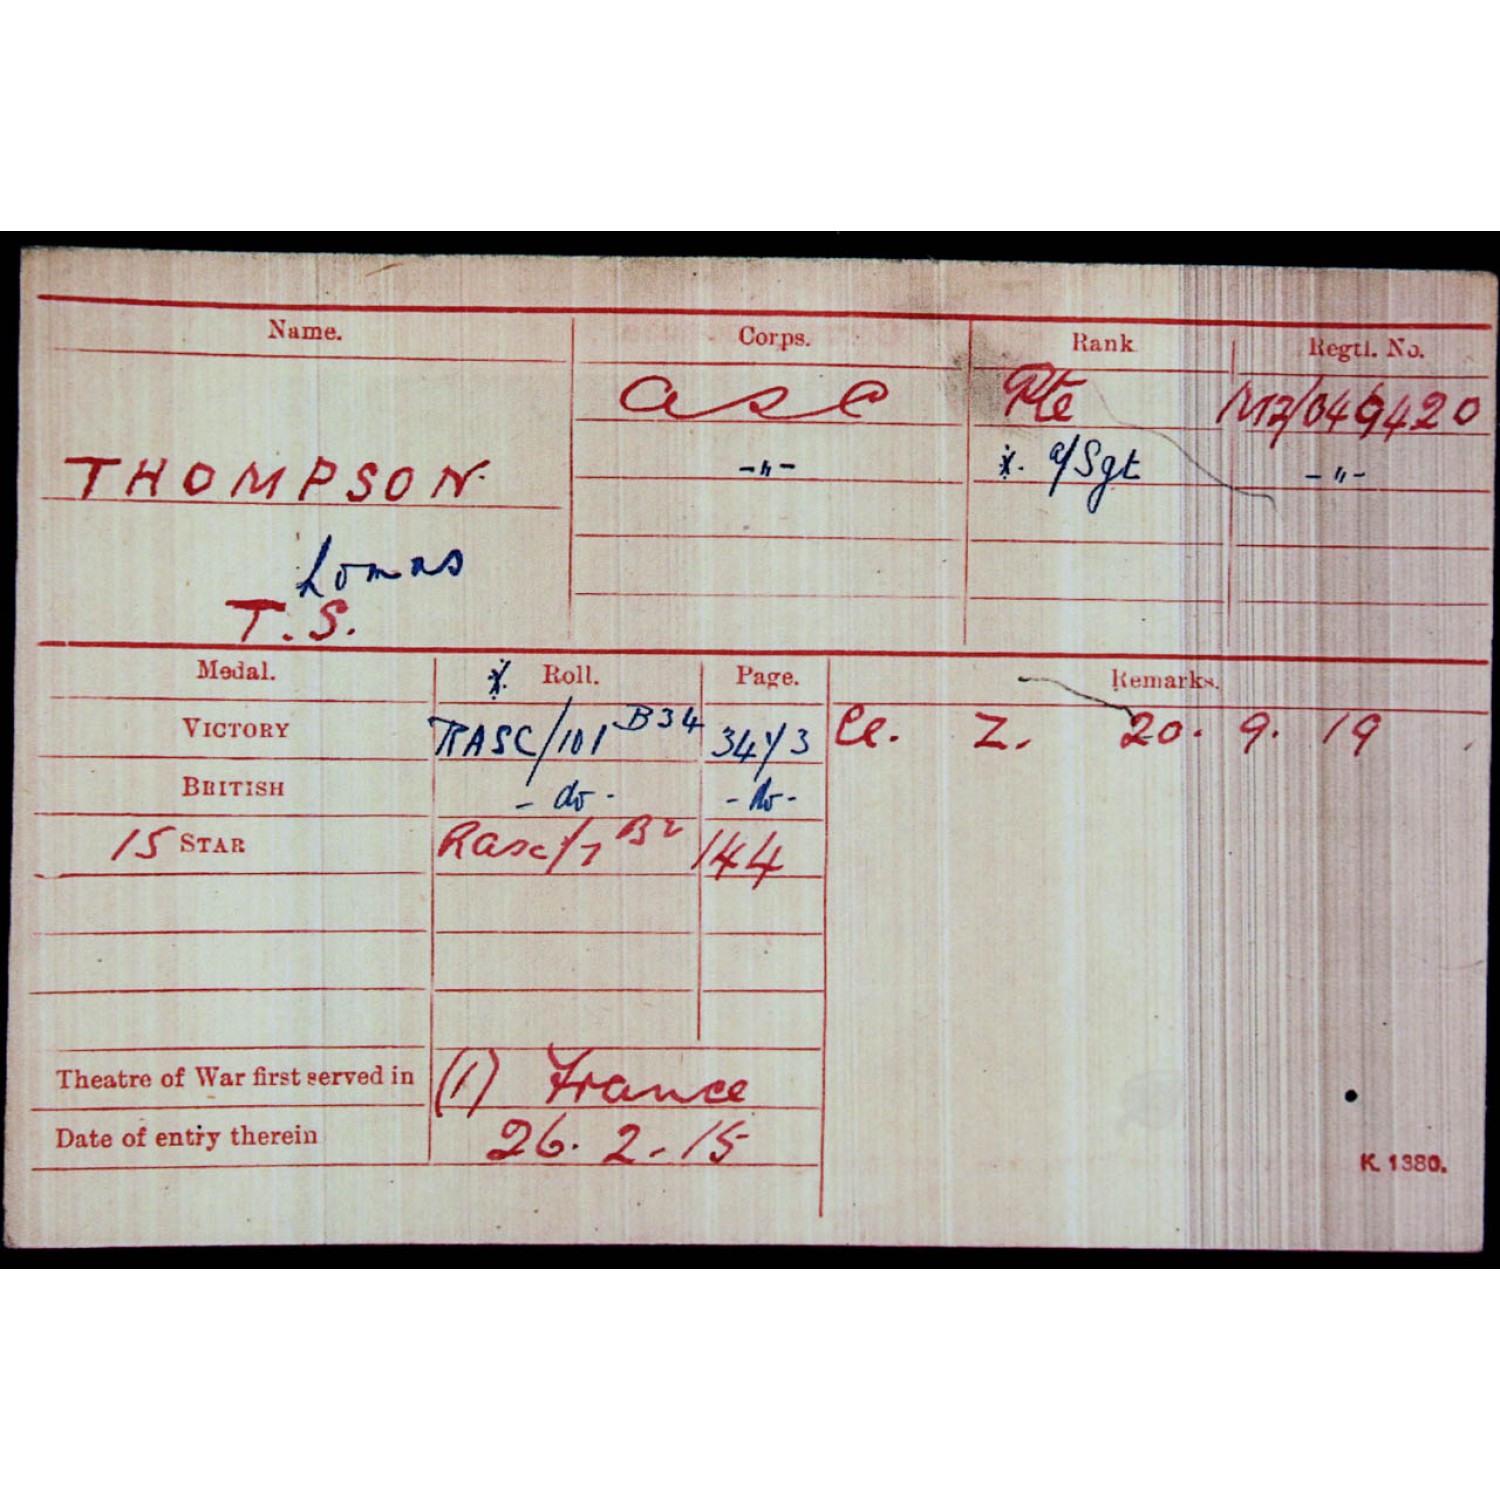 Name. Corps. Rank Regtl. No.
ASC Pte M2/049420
THOMPSON. -"- ⁒. a/Sgt -"-
Lomas
T. S.
Medal. ⁒. Roll. Page. Remarks.
VICTORY RASC/101 B34 3413 Cl. Z. 20. 9. 19
BRITISH - do - - do -
15 STAR Rasc/7 B2 144
Theatre of War first served in (1) France
Date of entry therein 26. 2. 15
K 1380.